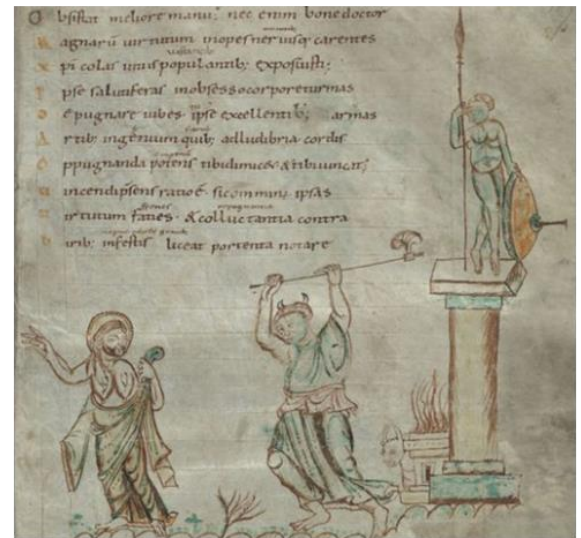 O bsistat meliore manu; nec enim bone doctor
M agnarū uirtutum inopes neruisq; carentes
X pi colas uitiis populantib; exposuisti;
I pse salutiferas inobsesso corpore turmas
D epugnare iubes ipse excellentib; armas
A rtib; ingenium quib; adludibria cordis
O ppugnanda potens tibi dimicec &tibi uincat;
U incendi psens ratio ē si commin; ipsas
U irtutum facies &colluctantia contra
U irib; infestis liceat portenta notare